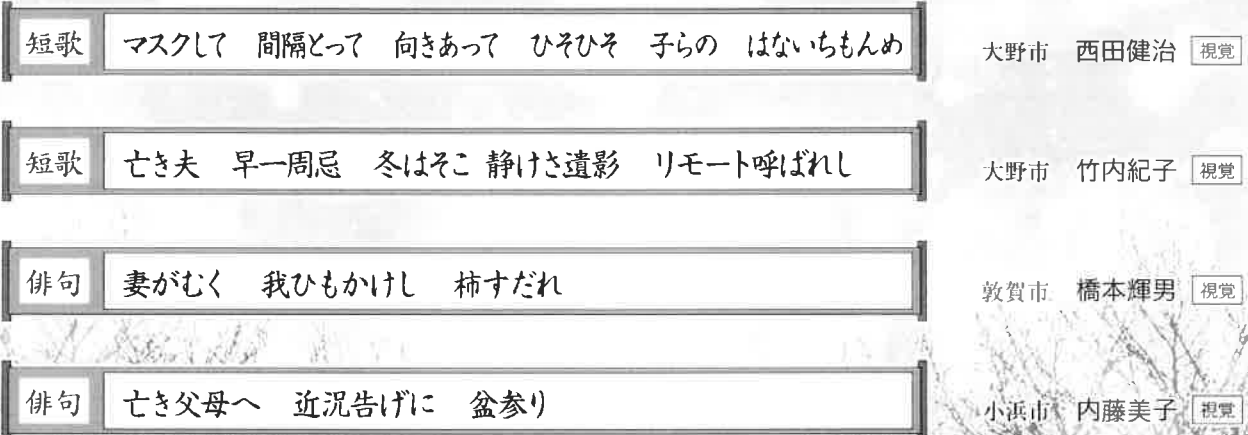 短歌 マスクして 間隔とって 向きあって ひそひそ 子らの はないちもんめ 大野市 西田健治 視覚
短歌 亡き夫 早一周忌 冬はそこ 静けさ遺影 リモート呼ばれし 大野市 竹内紀子 視覚
俳句 妻がむく 我ひもかけし 柿すだれ 敦賀市 橋本輝男 視覚
俳句 亡き父母へ 近況告げに 盆参り 小浜市 内藤美子 視覚